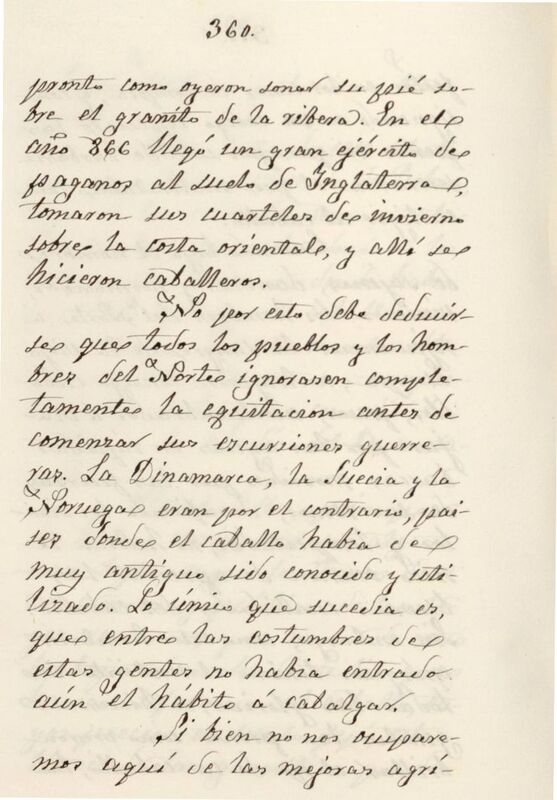 360.
pronto como oyeron sonar su pié so-
bre el granito de la ribera. En el
año 866 llegó un gran ejército de
paganos al suelo de Inglaterra,
tomaron sus cuarteles de invierno
sobre la costa oriental, y allí se
hicieron caballeros.
No por esto debe deducir-
se que todos los pueblos y los hom-
bres del Norte ignorasen comple-
tamente la equitacion antes de
comenzar sus escursiones guerre-
ras. La Dinamarca, la Suecia y la
Noruega eran por el contrario, pai-
ses donde el caballo habia de
muy antiguo sido conocido y uti-
lizado. Lo único que sucedia es,
que entre las costumbres de
estas gentes no habia entrado
aún el hábito á cabalgar.
Si bien no nos ocupare-
mos aquí de las mejoras agrí-